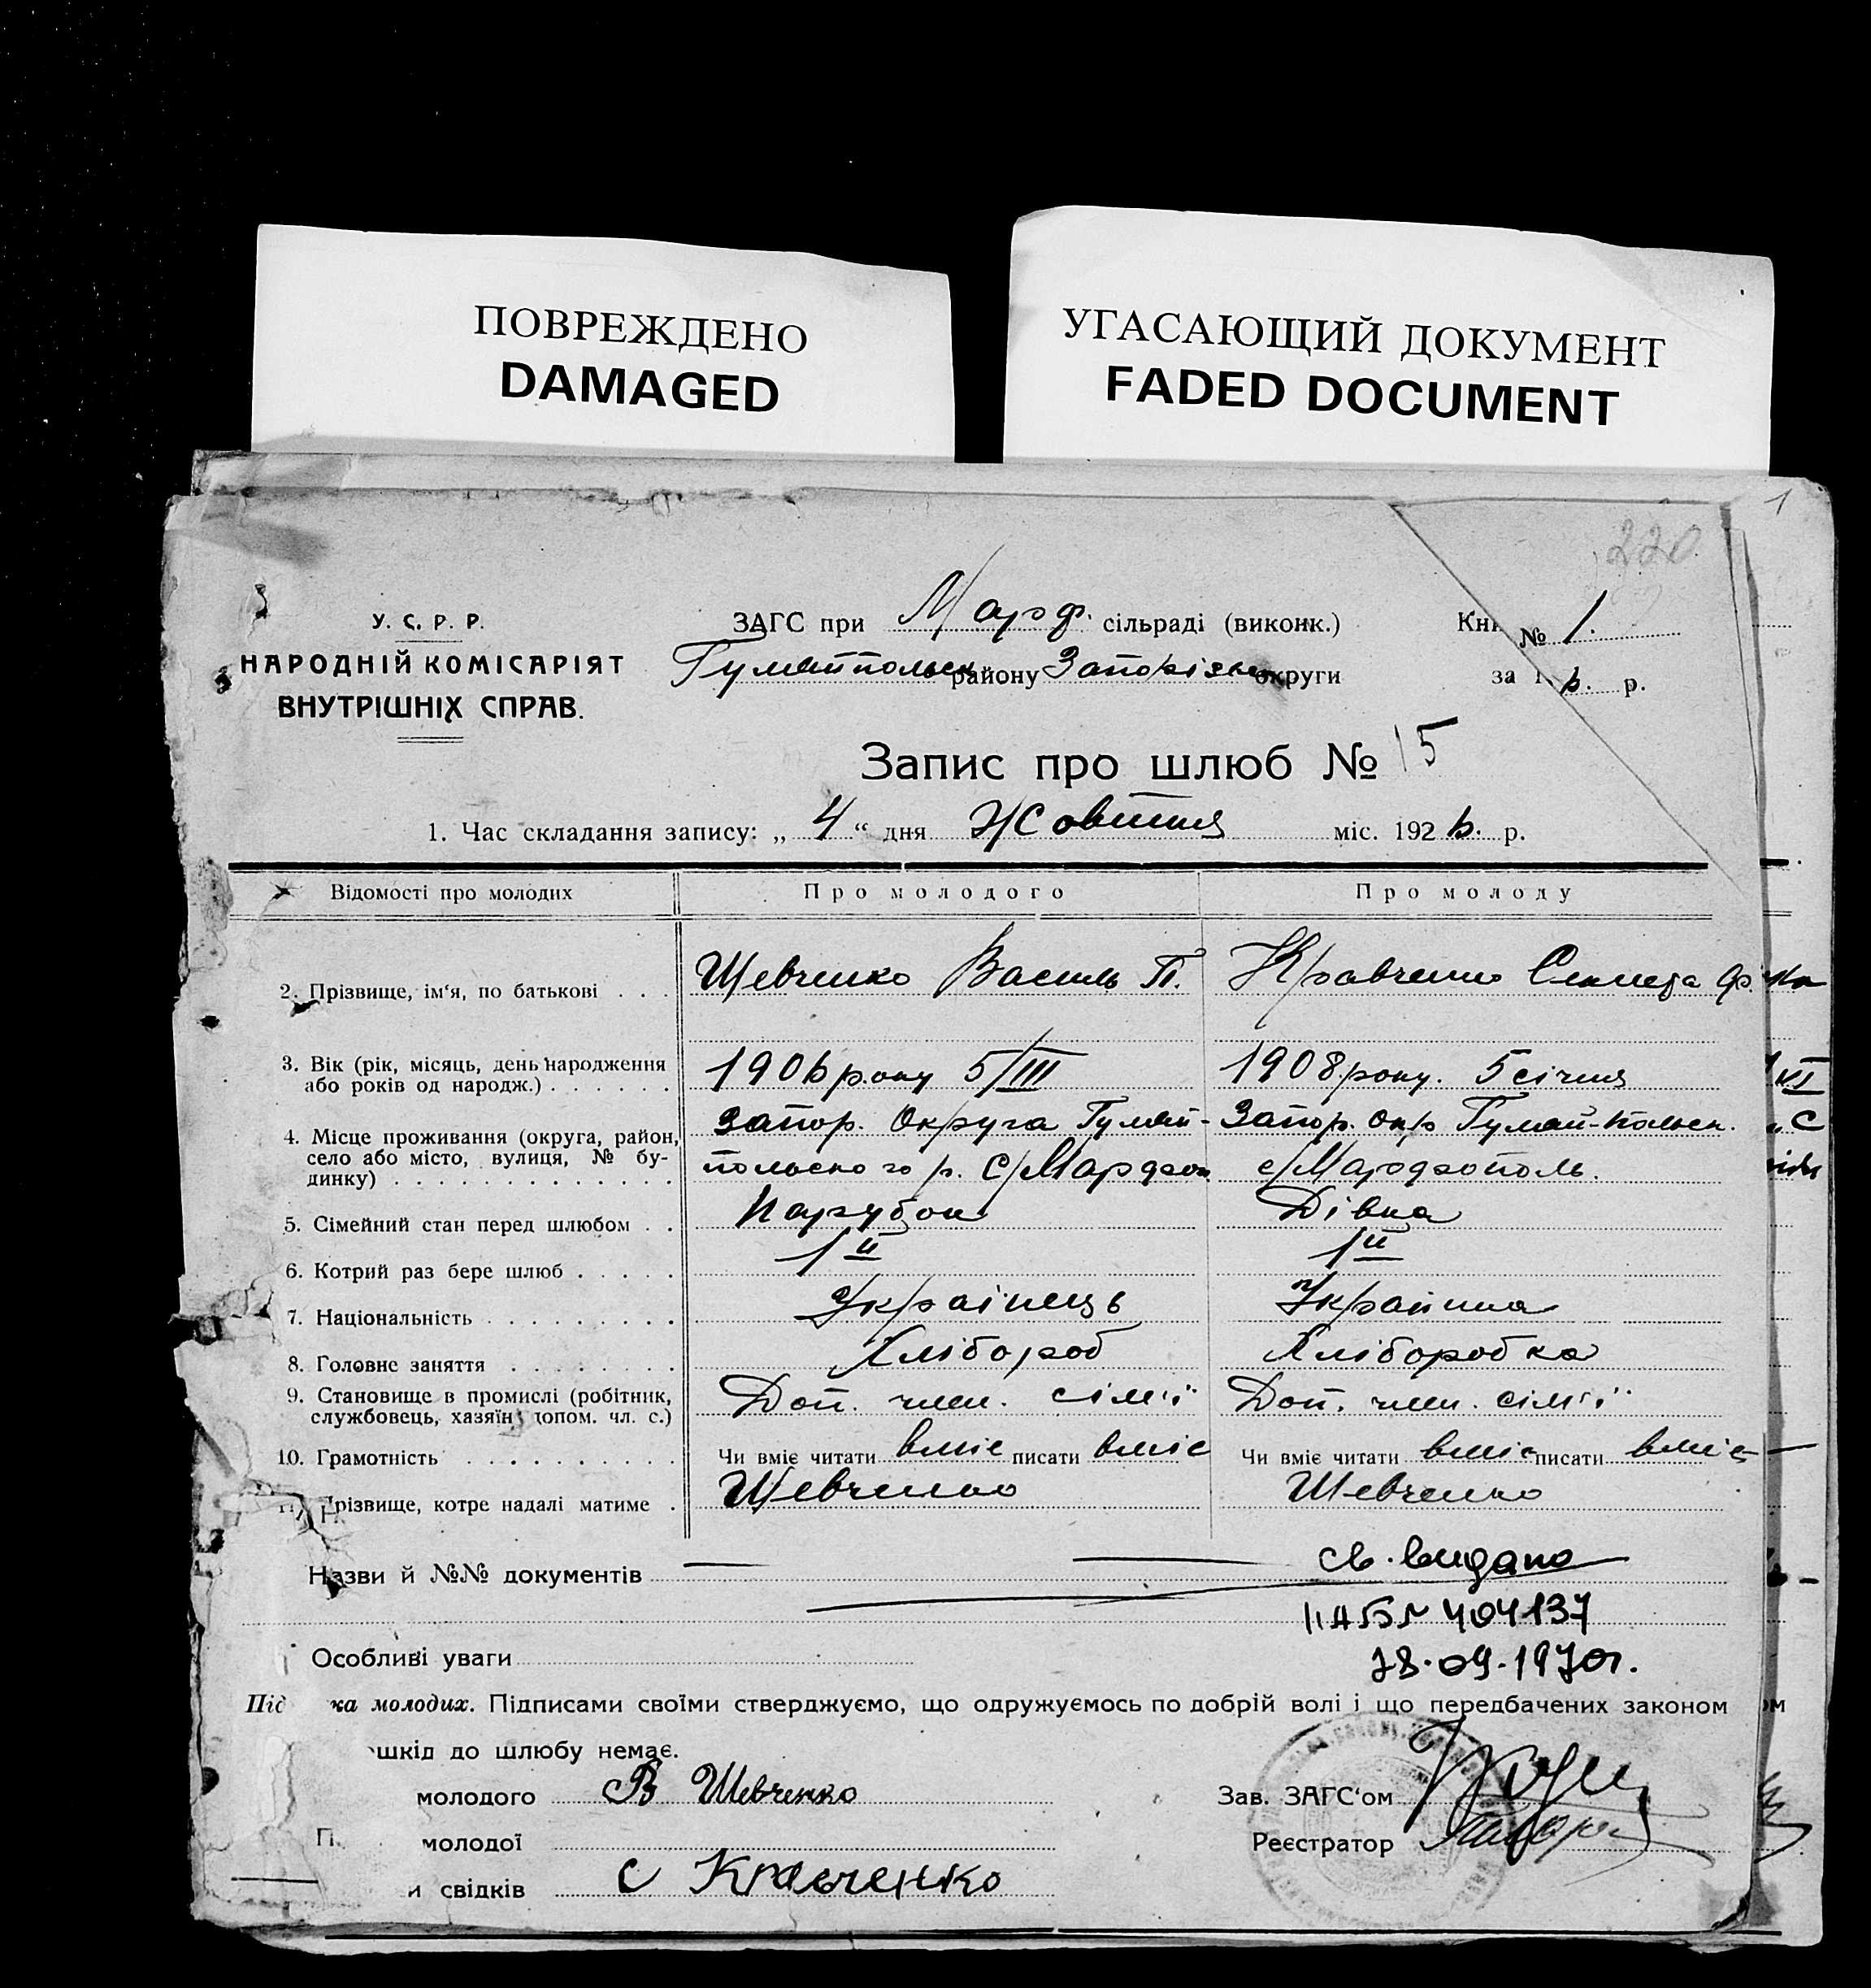 ПОВРЕЖДЕНО
DAMAGED
УГАСАЮЩИЙ ДОКУМЕНТ
FADED DOCUMENT
1
220
У. С. Р. Р.
НАРОДНІЙ КОМІСАРІЯТ
ВНУТРІШНІХ СПРАВ.
ЗАГС при Марф. сільраді (виконк.)
району Запорізьк округи
Кни № 1.
за 1 6. р.
Запис про шлюб № 15
1. Час складання запису: „ 4 “ дня Жовтня міс. 192 6. р.
Відомості про молодих
Про молодого
Про молоду
2. Прізвище, ім‘я, по батькові
Шевченко Василь П.
Кравченко Ф.
3. Вік (рік, місяць, день народження
або років од народж.)
1906 року 5/III
1908 року. 5 січня
4. Місце проживання (округа, район,
село або місто, вулиця, № бу-
динку)
Запор. Округа Гуляй-
польського р. С/Марфоп
Запор. окр Гуляй-Польск.
с/Марфополь.
5. Сімейний стан перед шлюбом
Парубок
Дівка
6. Котрий раз бере шлюб
1й
1й
7. Національність
Українець
Українка
8. Головне заняття
Хлібороб
Хлібороб ка
9. Становище в промислі (робітник,
службовець, хазяїн, допом. чл. с.)
Доп. член. сім'ї
Доп. член. сім'ї
10. Грамотність
Чи вміє читати вміє писати вміє
Чи вміє читати вміє писати вміє
11. Прізвище, котре надалі матиме
Шевченко
Шевченко
Назви й №№ документів
св. видано
404137
Особливі уваги
28.09.1970г.
Під ка молодих. Підписами своїми стверджуємо, що одружуємось по добрій волі і що передбачених законом
ошкід до шлюбу немає.
молодого В Шевченко
Зав. ЗАГС‘ом
П молодої
Реєстратор
и свідків С Кравченко